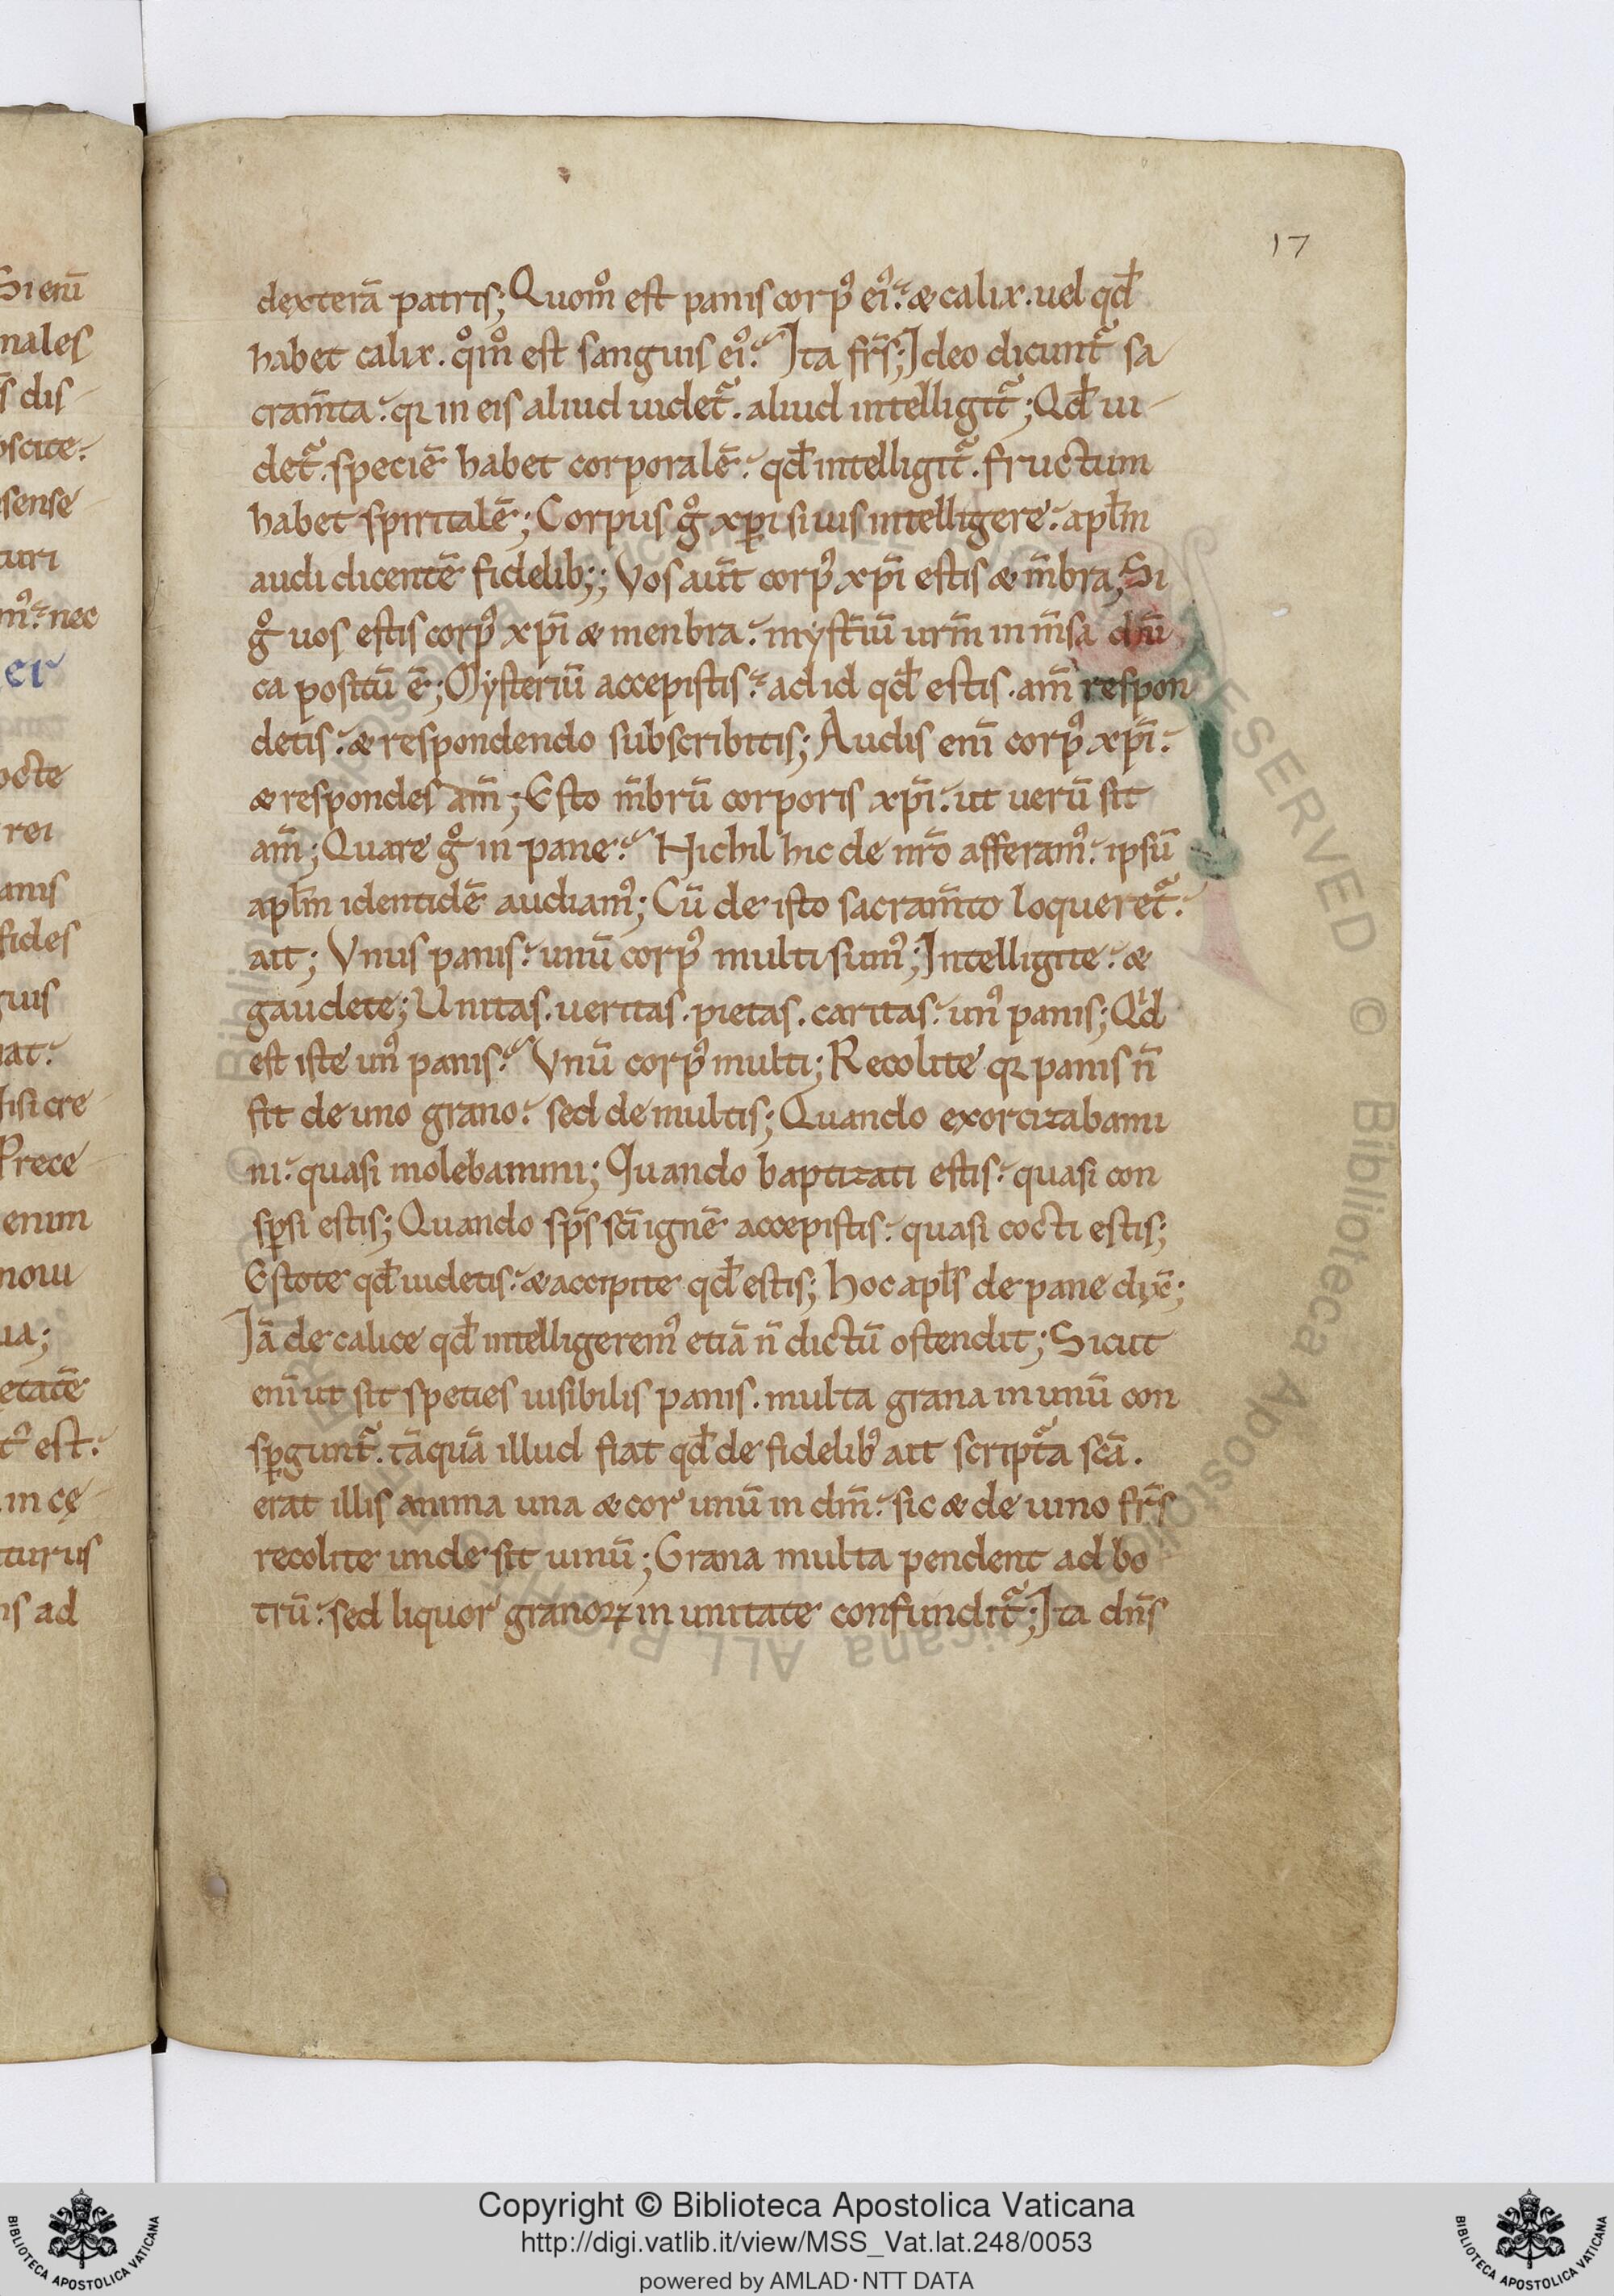 17
dexterā patris; Quom̊ est panis corp᾽ ei᾽. & calix. uel qđ
habet calix. q̊m̊ est sanguis ei᾽. Ita fr̄s; Ideo dicunt᷑ sa
cram̄ta. qr in eis aliud uidet᷑. aliud intelligit᷑; Qđ ui
det᷑. speciē habet corporalē. qđ intelligit᷑. fructum
habet spiritalē; Corpus g̊ xp̄i si uis intelligere. apl̄m
audi dicentē fidelib;; Vos aūt corp᾽ xp̄i estis & m̄bra; Si
g̊ uos estis corp᾽ xp̄i & menbra. myst̄iū ur̄m in m̄sa dn̄i
ca positū ē; Mysteriū accepistis. ad id qđ estis. am̄ respon
detis. & respondendo subscribitis; Audis eni᷑ corp᾽ xp̄i.
& respondes am̄; Esto m̄brū corporis xp̄i. ut uerū sit
am̄; Quare g̊ in pane. Hichil hic de nr̄o afferam᾽. ipsū
apl̄m identidē audiam᾽; Cū de isto sacram̄to loqueret᷑.
ait; Vnus panis. unū corp᾽ multi sum᾽; Intelligite. &
gaudete; Unitas. ueritas. pietas. caritas. un᾽ panis; Qͥd
est iste un᾽ panis. Vnū corp᾽ multi; Recolite qr panis n̄
fit de uno grano. sed de multis; Quando exorcizabami
ni. quasi molebamini; Quando baptizati estis. quasi con
sp̲si estis; Quando sp̄s sc̄i ignē accepistis. quasi cocti estis;
Estote qđ uidetis. & accipite qđ estis; hoc apl̄s de pane dix̄;
Iā de calice qđ intelligerem᾽ etiā n̄ dictū ostendit; Sicut
enī ut sit speties uisibilis panis. multa grana in unū con
sp̲gunt᷑. tāquā illud fiat qđ de fidelib᾽ ait script᷑a scā.
erat illis anima una & cor unū in dm̄. sic & de uino fr̄s
recolite unde sit uinū; Grana multa pendent ad bo
trū. sed liquor granoꝝ in unitate confundit᷑; Ita dn̄s
Si eni᷑
nales
dis
oscite.
sense
turi
m᾽. nec
er
octe
rei
anis
fides
guis
nat.
isi cre
Prece
enim
noui
ua;
etatē
est.
in cę
turus
ns ad
Copyright © Biblioteca Apostolica Vaticana
http://digi.vatlib.it/view/MSS_Vat.lat.248/0053
powered by AMLAD·NTT DATA
BIBLIOTECA APOSTOLICA VATICANA
BIBLIOTECA APOSTOLICA VATICANA